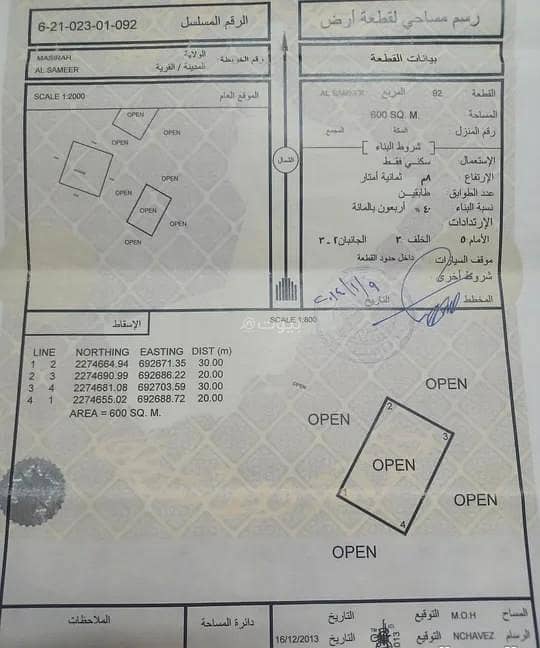 رسم مساحي لقطعة أرض
الرقم المسلسل 6-21-023-01-092
بيانات القطعة
الولاية MASIRAH
المدينة / القرية AL SAMEER
رقم الخريطة
القطعة 92 المربع AL SAMEER
المساحة 600 SQ. M.
رقم المنزل السكة المجمع
شروط البناء
الإستعمال سكني فقط
الإرتفاع ٨م ثمانية أمتار
عدد الطوابق طابقين
نسبة البناء ٤٠ % أربعون بالمائة
الإرتدادات
الأمام ٥ الخلف ٣ الجانبان ٢ - ٣
موقف السيارات داخل حدود القطعة
شروط أخرى
المخطط التاريخ
الموقع العام SCALE 1:2000
OPEN
OPEN
OPEN
OPEN
OPEN
OPEN
OPEN
OPEN
الشمال
الإسقاط
SCALE 1:800
بيوت
LINE NORTHING EASTING DIST (m)
1 2 2274664.94 692671.35 30.00
2 3 2274690.99 692686.22 20.00
3 4 2274681.08 692703.59 30.00
4 1 2274655.02 692688.72 20.00
AREA = 600 SQ. M.
OPEN
OPEN
OPEN
2
3
OPEN
1
OPEN
4
OPEN
المساح M.O.H التوقيع التاريخ
الرسام NCHAVEZ التوقيع التاريخ 16/12/2013
دائرة المساحة
الملاحظات